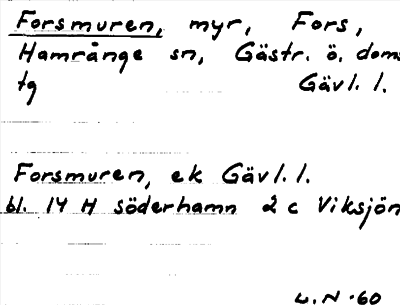 Forsmuren, myr, Fors,
Hamrånge sn, Gästr. ö. doms
tg Gävl. l.
Forsmuren, ek Gävl. l.
bl. 14 H söderhamn 2 c Viksjön
L.N -60